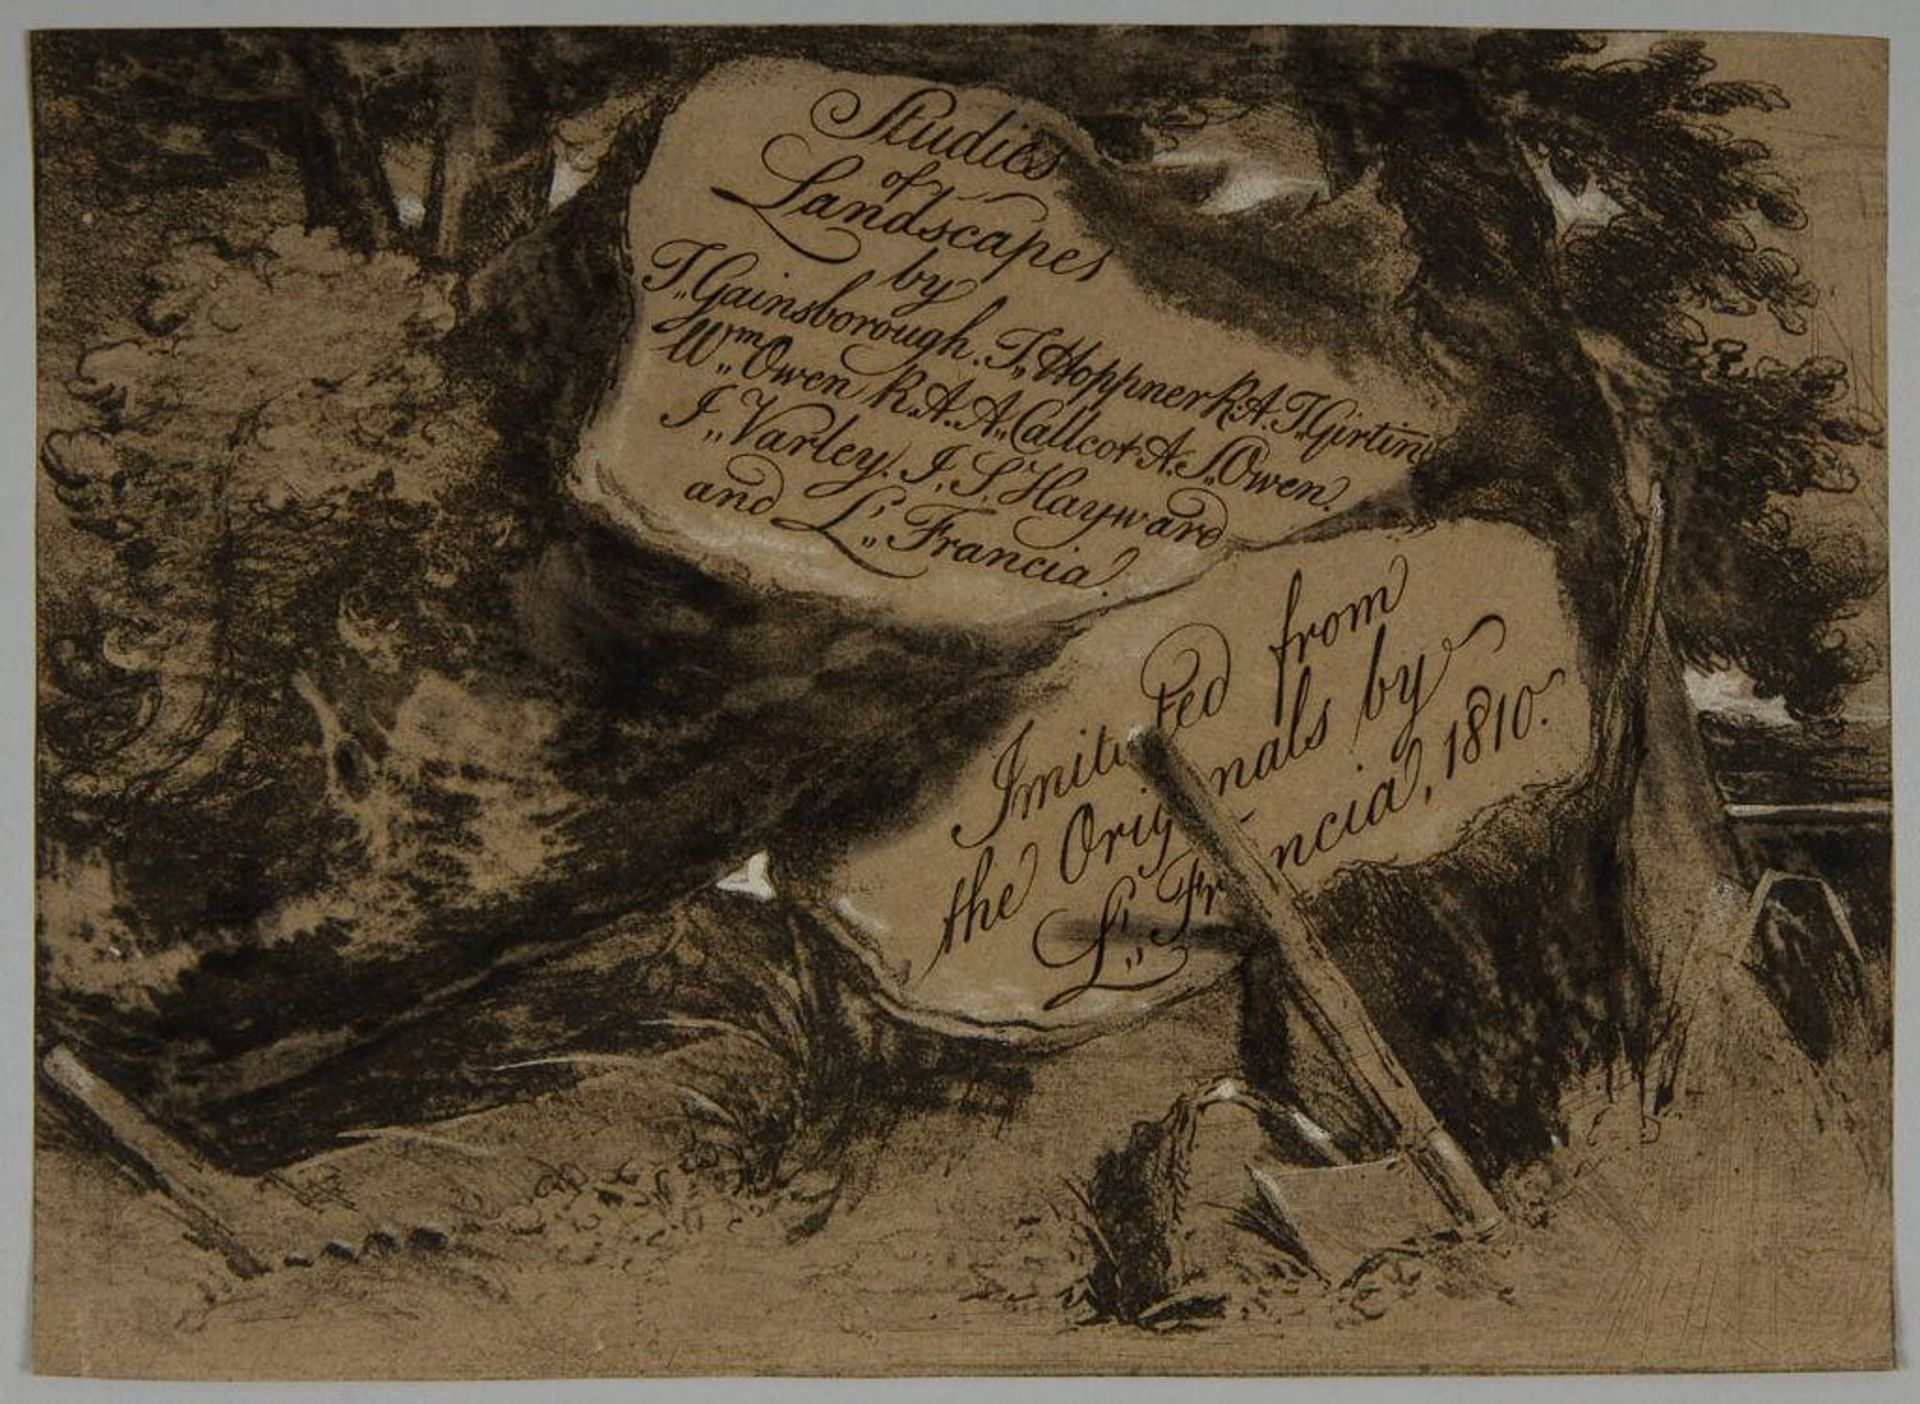 Studies
of
Landscapes
by
T,, Gainsborough. J,, Hoppner R.A. T,, Girtin
Wm,, Owen R.A. A,, Callcot A. S,, Owen.
J,, Varley. J. S. Hayward
and L,, Francia.
Imitated from
the Originals by
L,, Francia, 1810.